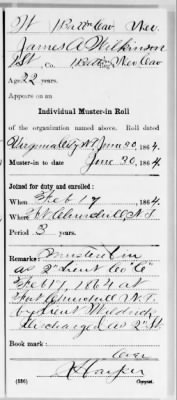 W 1 Batt'n Cav Nev.
James A Wilkinson
Co. 1 Batt'n Nev Cav
Age 22 years.
Appears on an
Individual Muster-in Roll
of the organization named above. Roll dated
Virginia City N.T. June 30, 1864.
Muster-in to date June 30, 1864.
Joined for duty and enrolled:
When Feb 17, 1864.
Where Ft Churchill N.T.
Period 3 years.
Remarks: Mustered in
as 2" Lieut Co "C"
Feb 17, 1864 at
Fort Churchill N.T.
by Lieut
discharged as 2" Lt.
Book mark:
over
(356) Copyist.